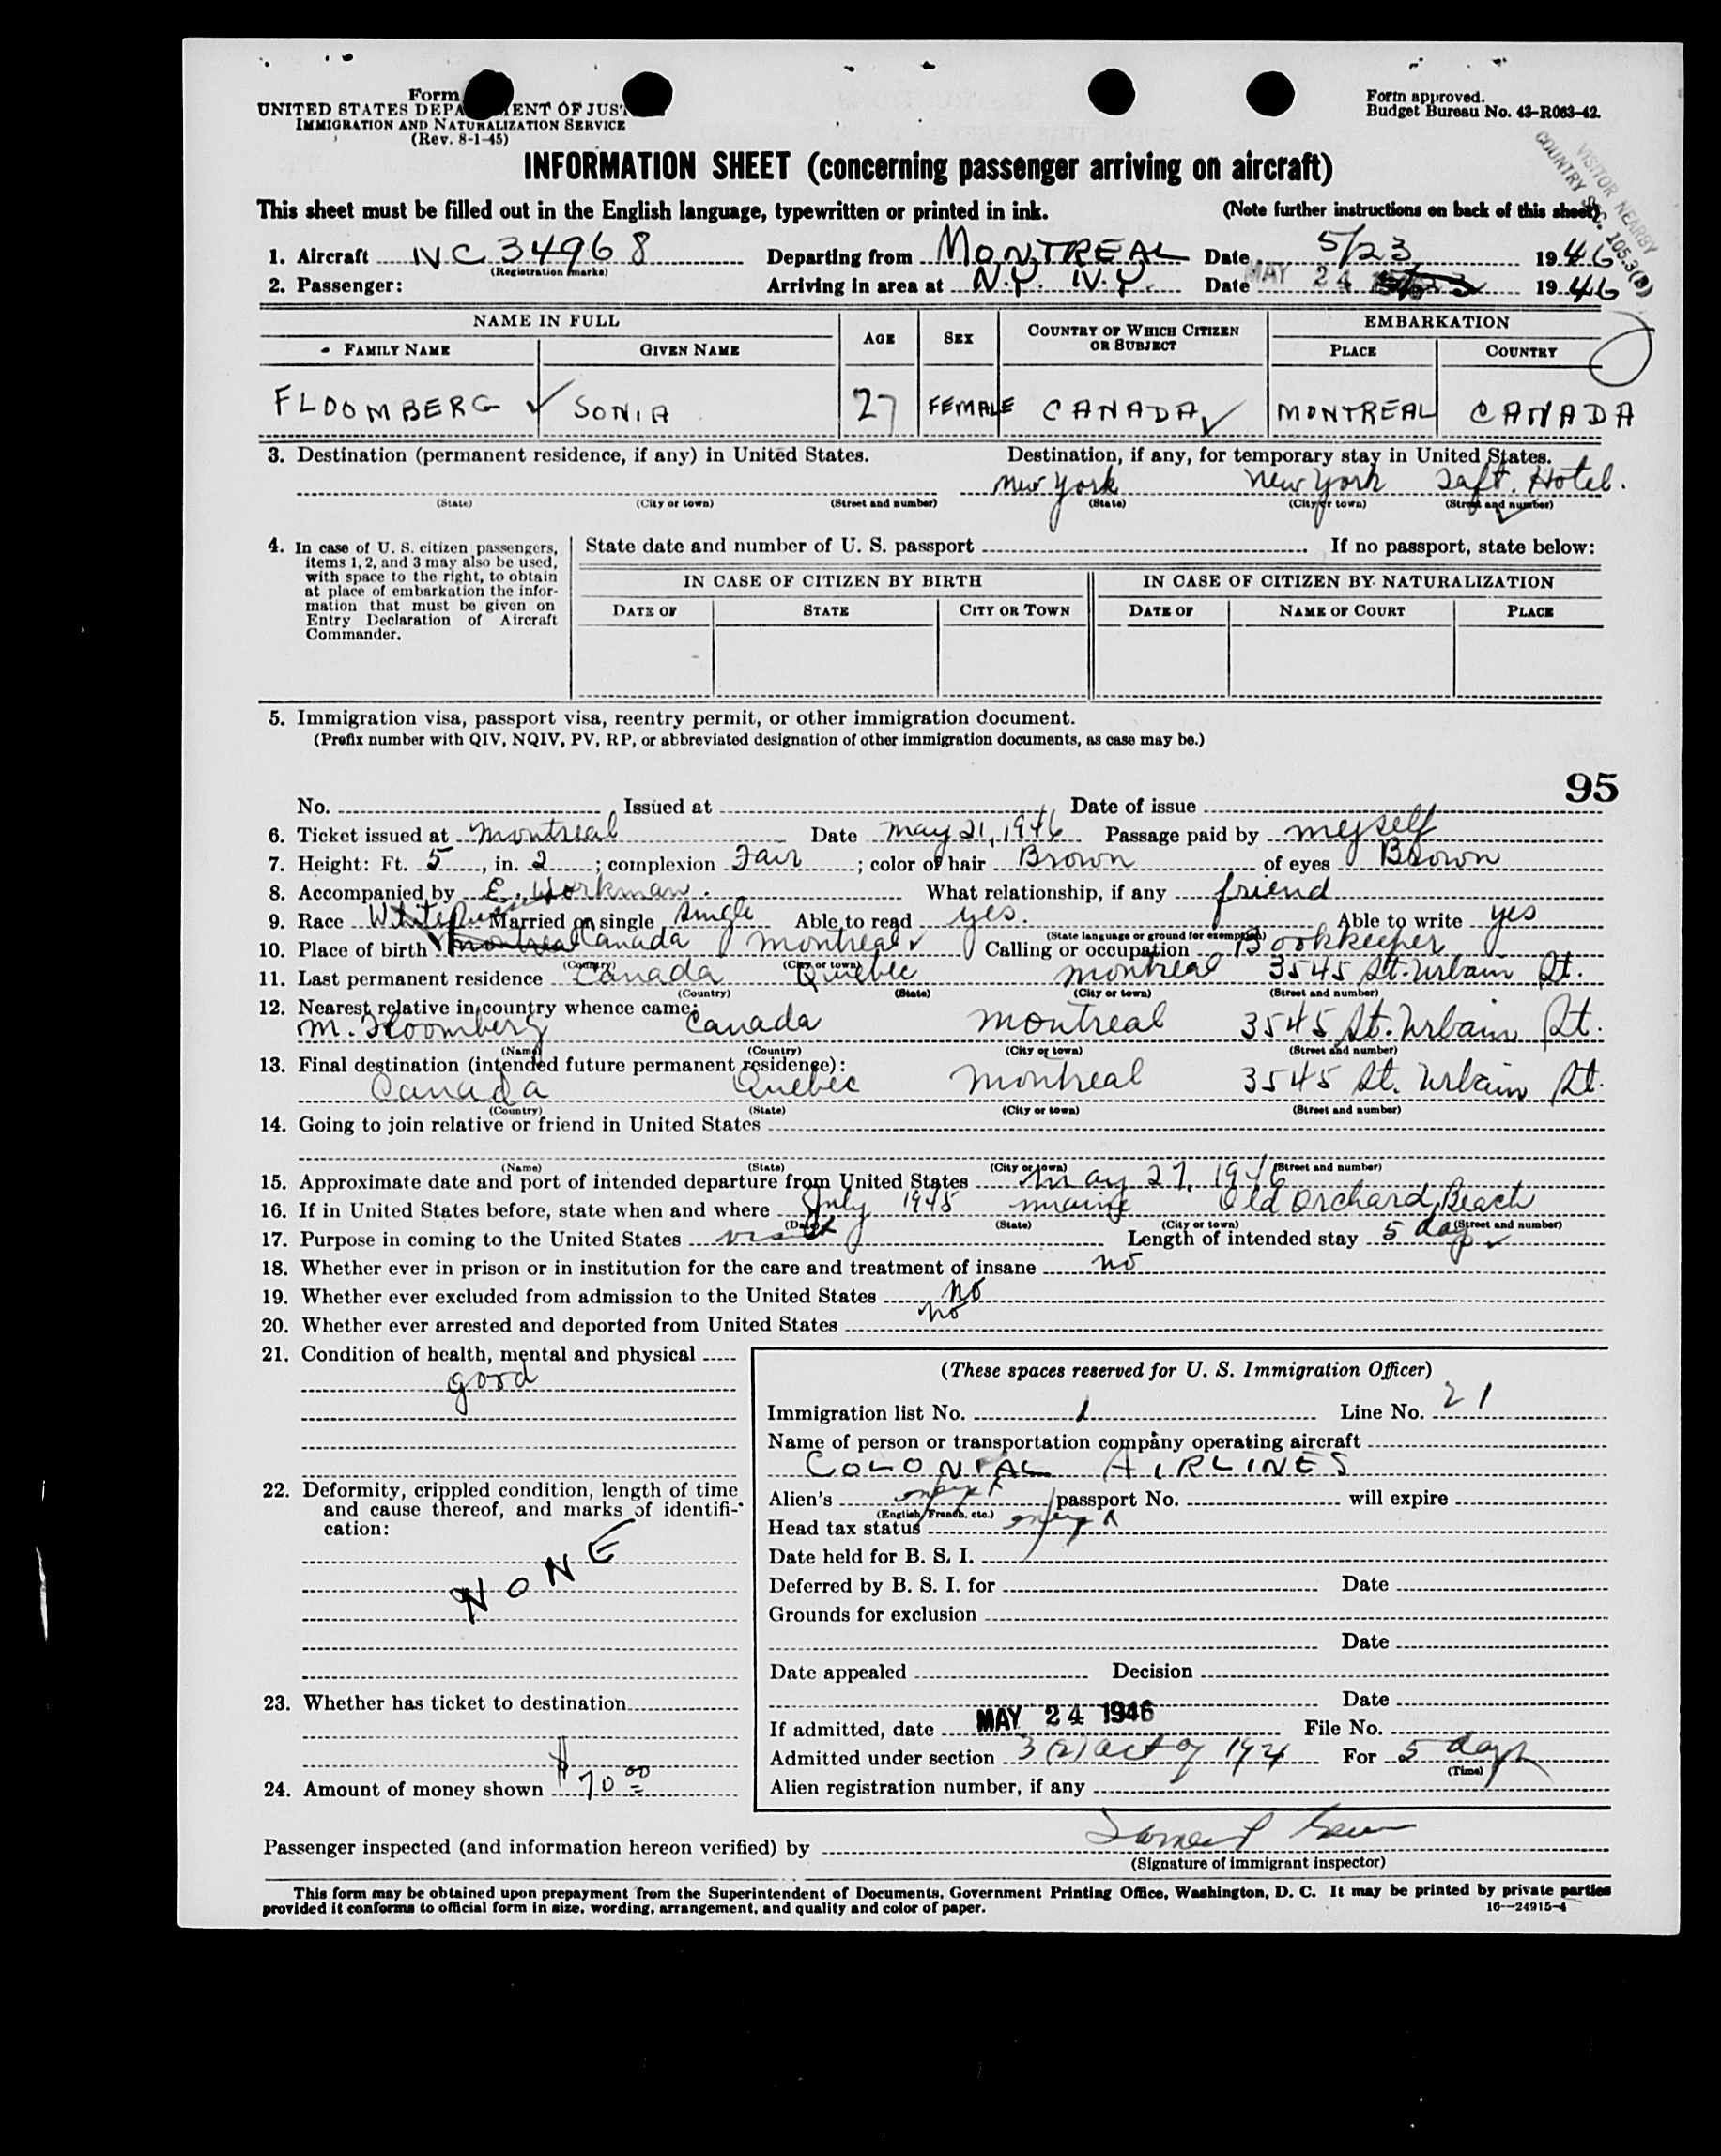 Form
UNITED STATES DEPA ENT OF JUST
IMMIGRATION AND NATURALIZATION SERVICE
(Rev. 8-1-45)
Form approved.
Budget Bureau No. 43-R063-42.
VISITOR NEARBY
COUNTRY SEC. 105.3(B)
INFORMATION SHEET (concerning passenger arriving on aircraft)
This sheet must be filled out in the English language, typewritten or printed in ink. (Note further instructions on back of this sheet)
1. Aircraft NC 34968 Departing from MONTREAL Date 5/23 1946
(Registration marks)
2. Passenger: Arriving in area at N.Y. N.Y. Date MAY 24 1946
NAME IN FULL AGE SEX COUNTRY OF WHICH CITIZEN OR SUBJECT EMBARKATION
FAMILY NAME GIVEN NAME PLACE COUNTRY
FLOOMBERG ✓ SONIA 27 FEMALE CANADA ✓ MONTREAL CANADA
3. Destination (permanent residence, if any) in United States. Destination, if any, for temporary stay in United States.
New York New York Taft. Hotel.
(State) (City or town) (Street and number) (State) (City or town) (Street and number)
4. In case of U. S. citizen passengers, items 1, 2, and 3 may also be used, with space to the right, to obtain at place of embarkation the information that must be given on Entry Declaration of Aircraft Commander.
State date and number of U. S. passport If no passport, state below:
IN CASE OF CITIZEN BY BIRTH IN CASE OF CITIZEN BY NATURALIZATION
DATE OF STATE CITY OR TOWN DATE OF NAME OF COURT PLACE
5. Immigration visa, passport visa, reentry permit, or other immigration document.
(Prefix number with QIV, NQIV, PV, RP, or abbreviated designation of other immigration documents, as case may be.)
95
No. Issued at Date of issue
6. Ticket issued at Montreal Date May 21, 1946 Passage paid by myself
7. Height: Ft. 5, in. 2; complexion Fair; color of hair Brown of eyes Brown
8. Accompanied by E. Workman. What relationship, if any friend
9. Race White Married or single Single Able to read yes. Able to write yes
(State language or ground for exemption)
10. Place of birth Canada Montreal ✓ Calling or occupation Bookkeeper
(Country) (City or town)
11. Last permanent residence Canada Quebec Montreal 3545 St. Urbain St.
(Country) (State) (City or town) (Street and number)
12. Nearest relative in country whence came:
M. Floomberg Canada Montreal 3545 St. Urbain St.
(Name) (Country) (City or town) (Street and number)
13. Final destination (intended future permanent residence):
Canada Quebec Montreal 3545 St. Urbain St.
(Country) (State) (City or town) (Street and number)
14. Going to join relative or friend in United States
(Name) (State) (City or town) (Street and number)
15. Approximate date and port of intended departure from United States May 27, 1946
16. If in United States before, state when and where July 1945 Maine Old Orchard Beach
(Date) (State) (City or town) (Street and number)
17. Purpose in coming to the United States visit Length of intended stay 5 days ✓
18. Whether ever in prison or in institution for the care and treatment of insane no
19. Whether ever excluded from admission to the United States no
20. Whether ever arrested and deported from United States no
21. Condition of health, mental and physical
good
22. Deformity, crippled condition, length of time
and cause thereof, and marks of identifi-
cation:
NONE
23. Whether has ticket to destination
24. Amount of money shown $70.00
(These spaces reserved for U. S. Immigration Officer)
Immigration list No. 1 Line No. 21
Name of person or transportation company operating aircraft
COLONIAL AIRLINES
Alien's passport No. will expire
(English, French, etc.)
Head tax status
Date held for B. S. I.
Deferred by B. S. I. for Date
Grounds for exclusion
Date
Date appealed Decision
Date
If admitted, date MAY 24 1946 File No.
Admitted under section 3(2) act of 1924 For 5 days
(Time)
Alien registration number, if any
Passenger inspected (and information hereon verified) by
(Signature of immigrant inspector)
This form may be obtained upon prepayment from the Superintendent of Documents, Government Printing Office, Washington, D. C. It may be printed by private parties
provided it conforms to official form in size, wording, arrangement, and quality and color of paper.
16—24915-4